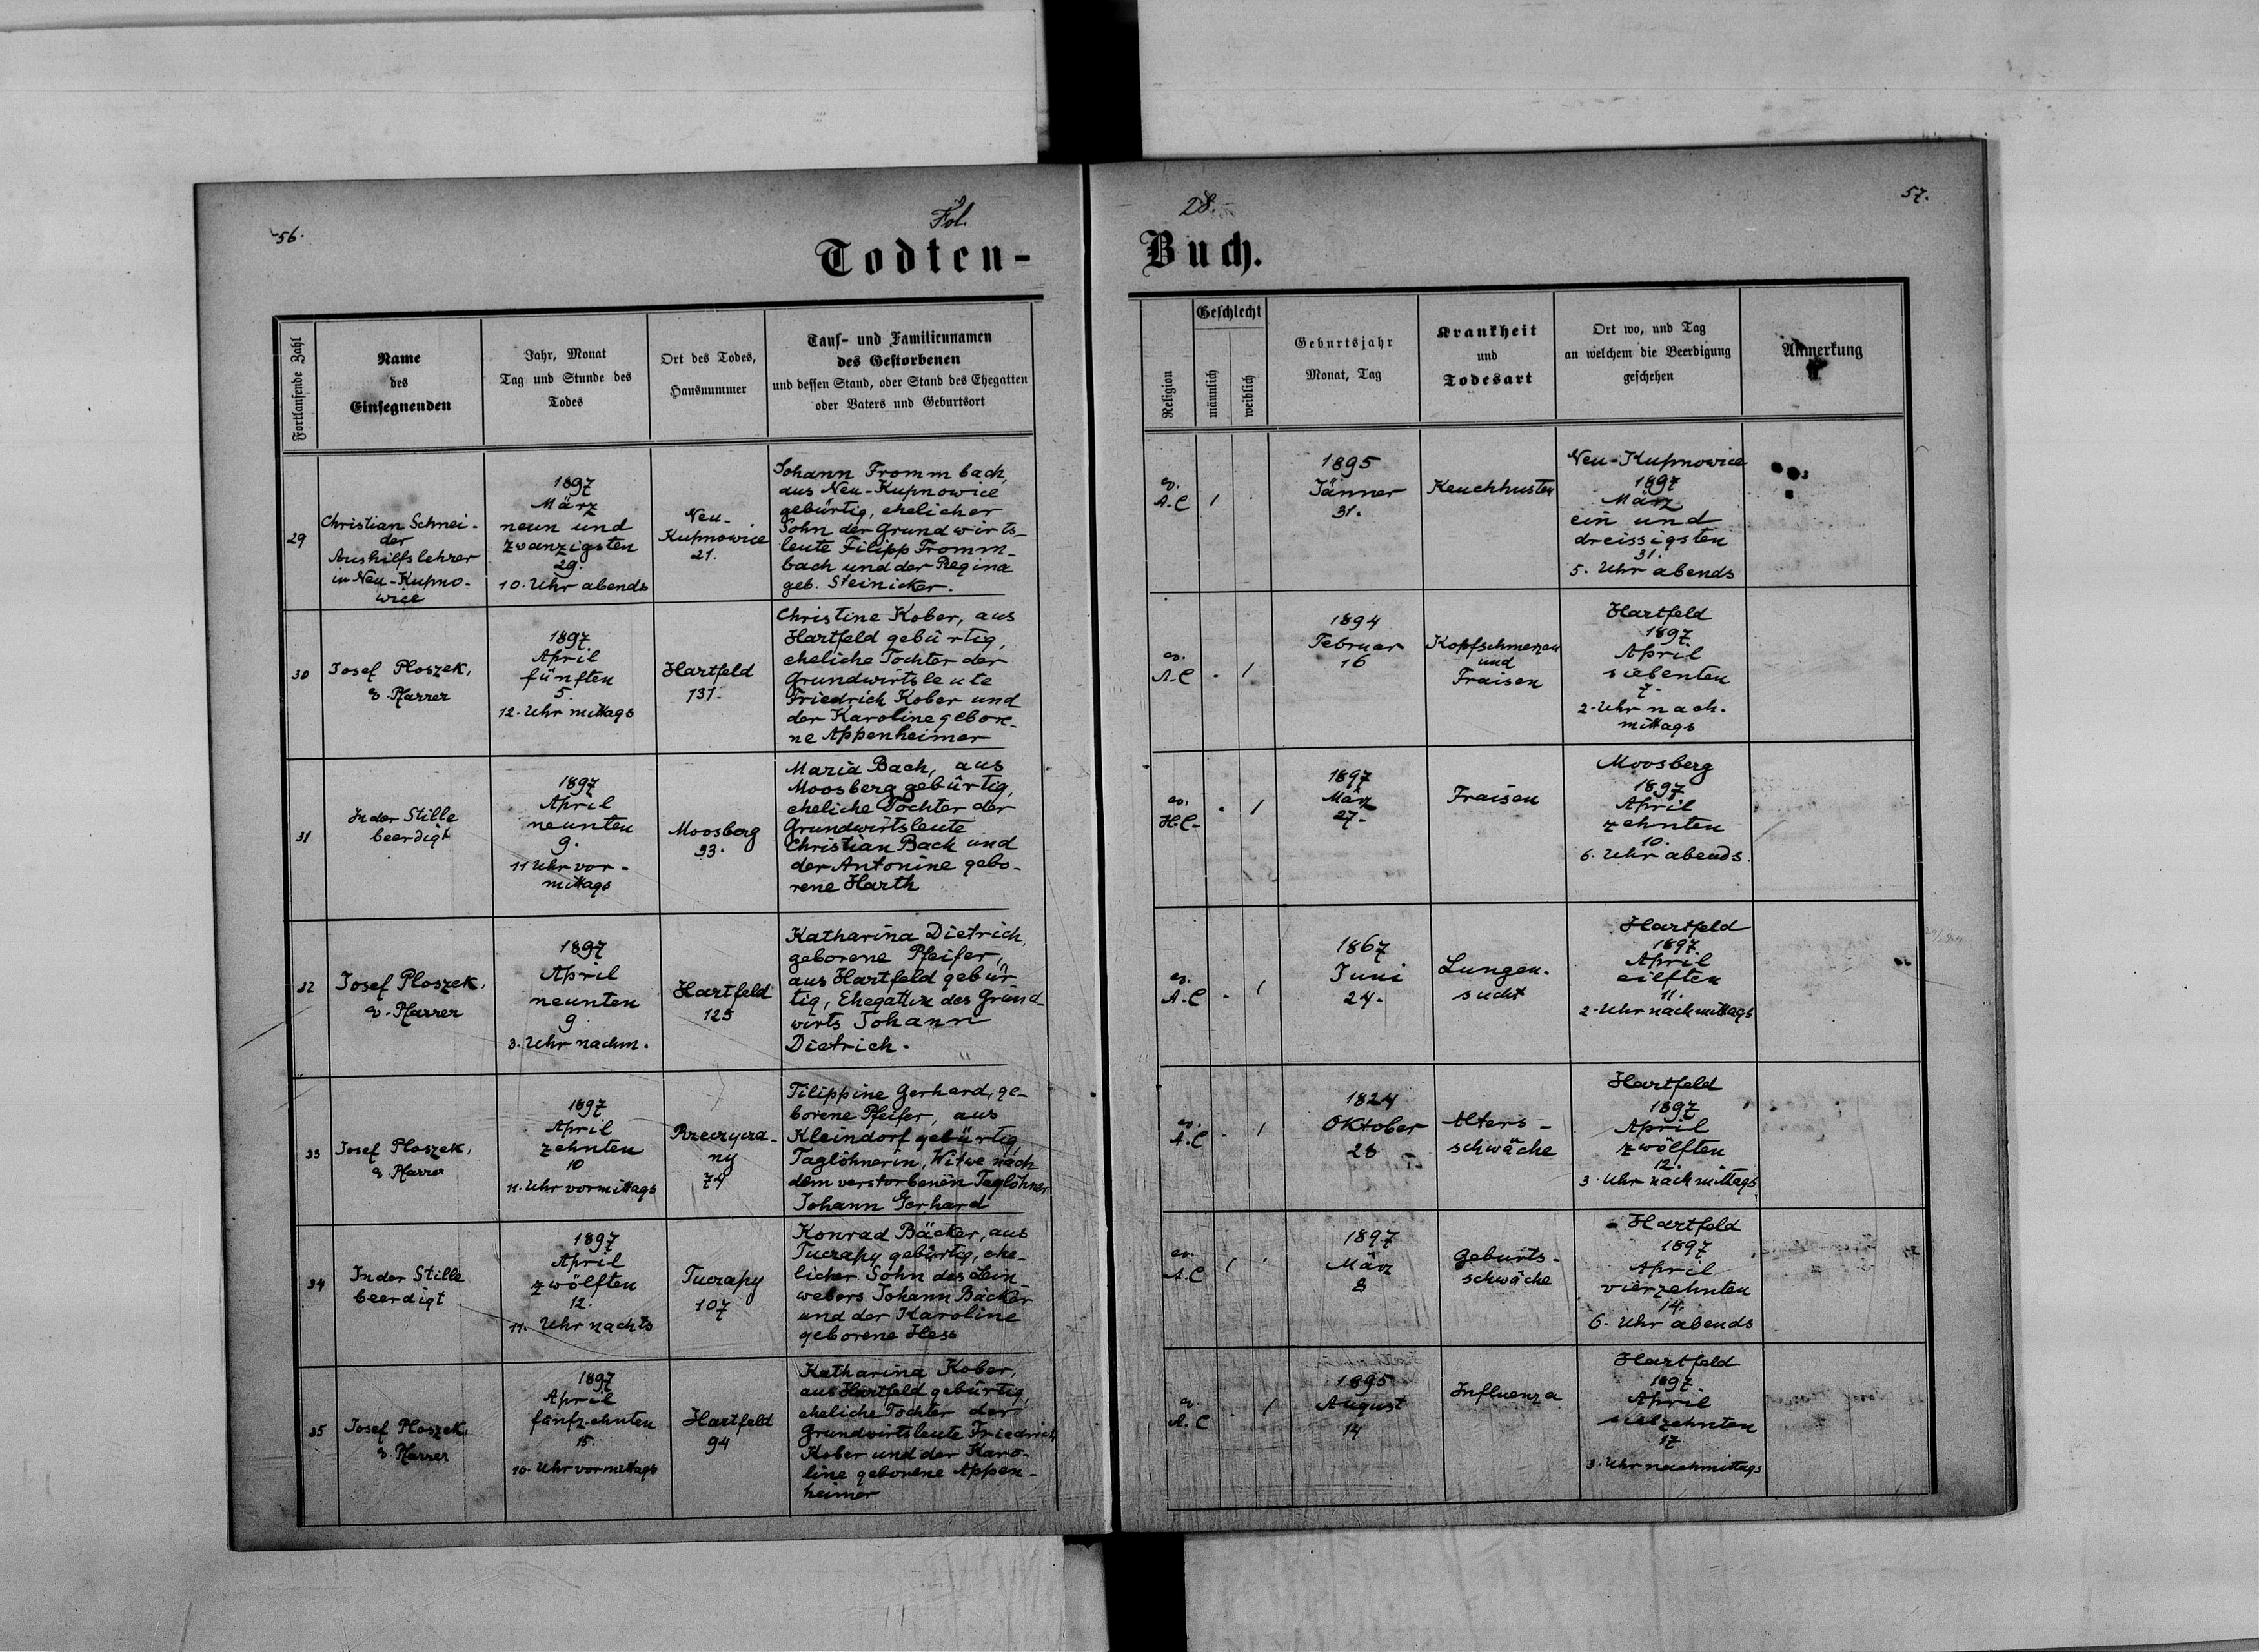 56.
Fol.
28.
57.
Todten-
Buch.
Fortlaufende Zahl
Name
des
Einsegnenden
Jahr, Monat
Tag und Stunde des
Todes
Ort des Todes,
Hausnummer
Tauf- und Familiennamen
des Gestorbenen
und dessen Stand, oder Stand des Ehegatten
oder Vaters und Geburtsort
Religion
Geschlecht
männlich
weiblich
Geburtsjahr
Monat, Tag
Krankheit
und
Todesart
Ort wo, und Tag
an welchem die Beerdigung
geschehen
Anmerkung
29
Christian Schnei-
der
Aushilfslehrer
in Neu-Kupno-
wice
1897
März
neun und
zwanzigsten
29.
10. Uhr abends
Neu-
Kupnowice
21.
Johann Frommbach,
aus Neu-Kupnowice
gebürtig, ehelicher
Sohn der Grundwirts-
leute Filipp Fromm-
bach und der Regina
geb. Steinicker.
ev.
A.C
1
1895
Jänner
31.
Keuchhusten
Neu-Kupnowice
1897
März
ein und
dreissigsten
31.
5. Uhr abends
30
Josef Ploszek,
ev. Pfarrer
1897
April
fünften
5.
12. Uhr mittags
Hartfeld
131.
Christine Kober, aus
Hartfeld gebürtig,
eheliche Tochter der
Grundwirtsleute
Friedrich Kober und
der Karoline gebore-
ne Appenheimer
ev.
A.C
1
1894
Februar
16
Kopfschmerzen
und
Fraisen
Hartfeld
1897
April
siebenten
7.
2. Uhr nach-
mittags
31
In der Stille
beerdigt
1897
April
neunten
9.
11 Uhr vor-
mittags
Moosberg
33.
Maria Bach, aus
Moosberg gebürtig,
eheliche Tochter der
Grundwirtsleute
Christian Bach und
der Antonine gebo-
rene Harth
ev.
H.C.
1
1897
März
27.
Fraisen
Moosberg
1897
April
zehnten
10.
6. Uhr abends.
32
Josef Ploszek,
ev. Pfarrer
1897
April
neunten
9
3. Uhr nachm.
Hartfeld
125
Katharina Dietrich,
geborene Pfeifer,
aus Hartfeld gebür-
tig, Ehegattin des Grund-
wirts Johann
Dietrich.
ev.
A.C
1
1867
Juni
24.
Lungen-
sucht
Hartfeld
1897
April
eilften
11.
2. Uhr nachmittags
33
Josef Ploszek,
ev. Pfarrer
1897
April
zehnten
10
11. Uhr vormittags
Rzeczycza-
ny
74
Filippine Gerhard, ge-
borene Pfeifer, aus
Kleindorf gebürtig,
Taglöhnerin, Witwe nach
dem verstorbenen Taglöhner
Johann Gerhard
ev.
A.C
1
1824
Oktober
28
Alters-
schwäche
Hartfeld
1897
April
zwölften
12.
3. Uhr nachmittags
34
In der Stille
beerdigt
1897
April
zwölften
12.
11. Uhr nachts
Tuczapy
107
Konrad Bäcker, aus
Tuczapy gebürtig, ehe-
licher Sohn des Lein-
webers Johann Bäcker
und der Karoline
geborene Hess
ev.
A.C
1
1897
März
8
Geburts-
schwäche
Hartfeld
1897
April
vierzehnten
14.
6. Uhr abends
35
Josef Ploszek,
ev. Pfarrer
1897
April
fünfzehnten
15.
10. Uhr vormittags
Hartfeld
94
Katharina Kober,
aus Hartfeld gebürtig,
eheliche Tochter der
Grundwirtsleute Friedrich
Kober und der Karo-
line geborene Appen-
heimer
ev.
A.C
1
1895
August
14
Influenza
Hartfeld
1897
April
siebzehnten
17
3. Uhr nachmittags